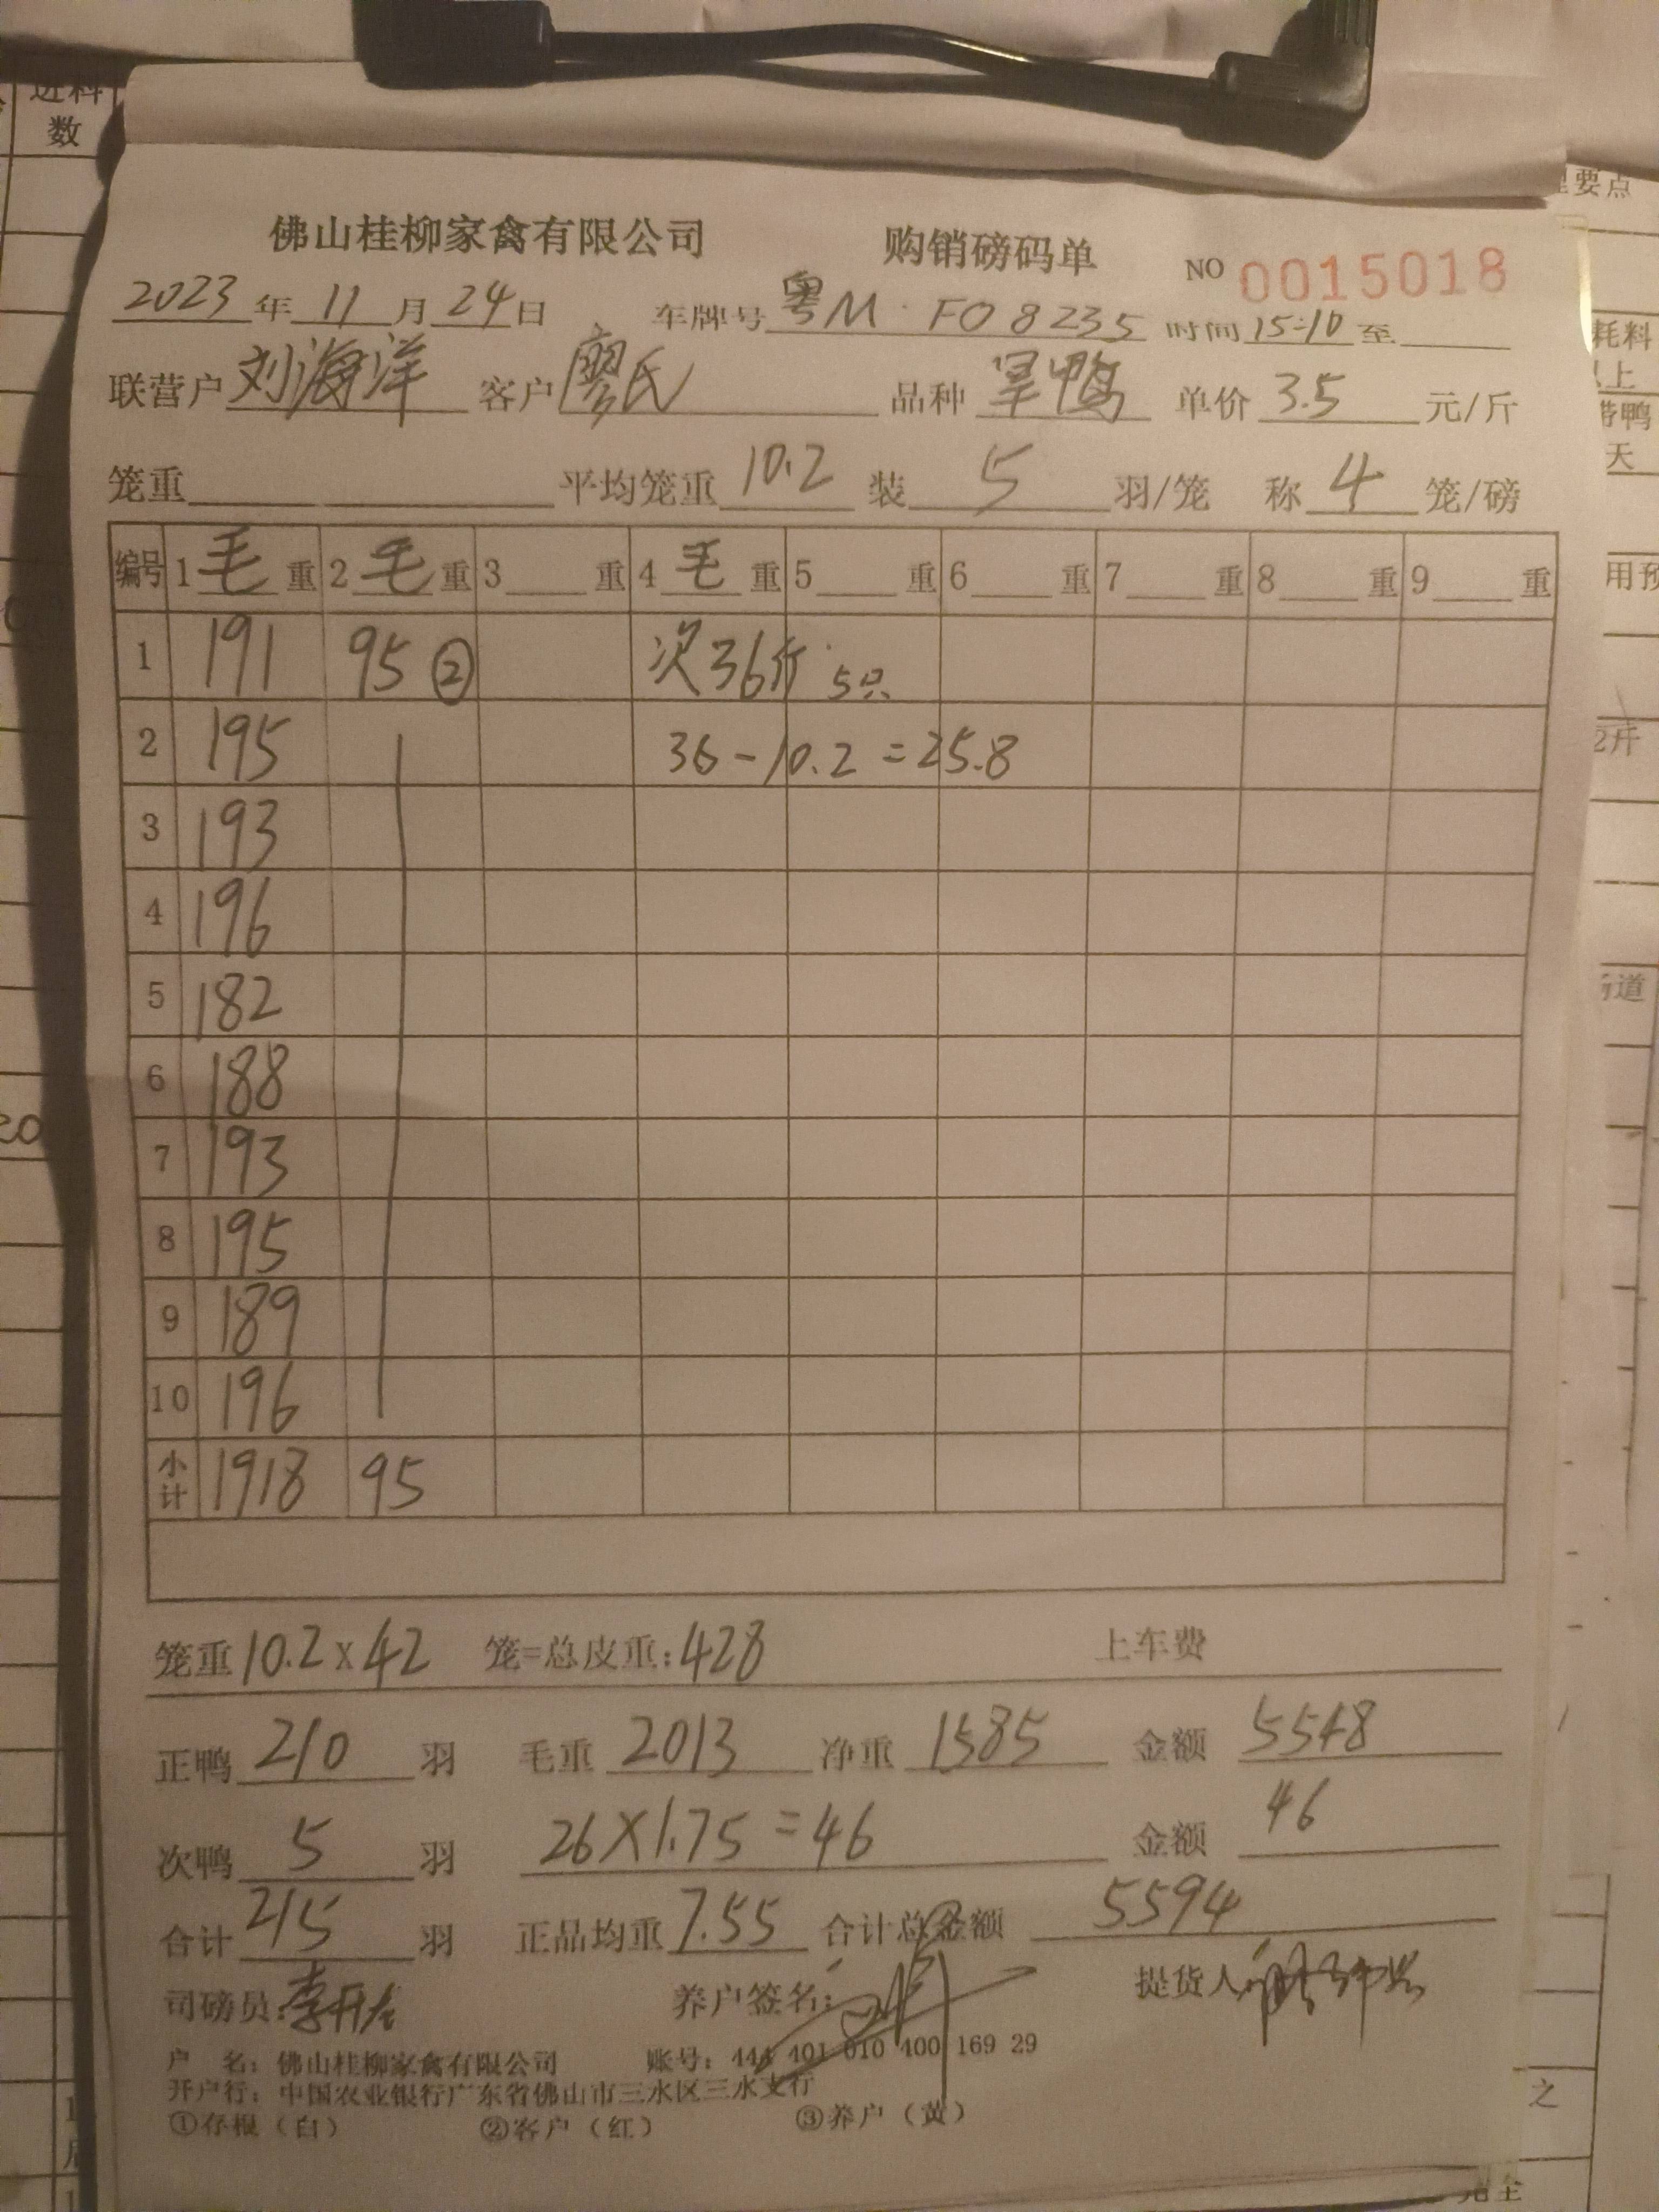 进料
数
佛山桂柳家禽有限公司 购销磅码单 NO 0015018
2023年11月24日 车牌号 粤M·F08235 时间 15:10 至
联营户 刘海洋 客户 廖氏 品种 旱鸭 单价 3.5 元/斤
笼重 平均笼重 10.2 装 5 羽/笼 称 4 笼/磅
编号 1 毛 重 2 毛 重 3 重 4 毛 重 5 重 6 重 7 重 8 重 9 重
1 191 95 ② 次36斤 5只
2 195 36-10.2=25.8
3 193
4 196
5 182
6 188
7 193
8 195
9 189
10 196
小计 1918 95
笼重 10.2×42 笼=总皮重:428 上车费
正鸭 210 羽 毛重 2013 净重 1585 金额 5548
次鸭 5 羽 26×1.75=46 金额 46
合计 215 羽 正品均重 7.55 合计总金额 5594
司磅员: 养户签名: 提货人
户 名：佛山桂柳家禽有限公司 账号：444 401 010 400 169 29
开户行：中国农业银行广东省佛山市三水区三水支行
①存根（白） ②客户（红） ③养户（黄）
要点
耗料
上
带鸭
天
用预
2斤
道
20
之